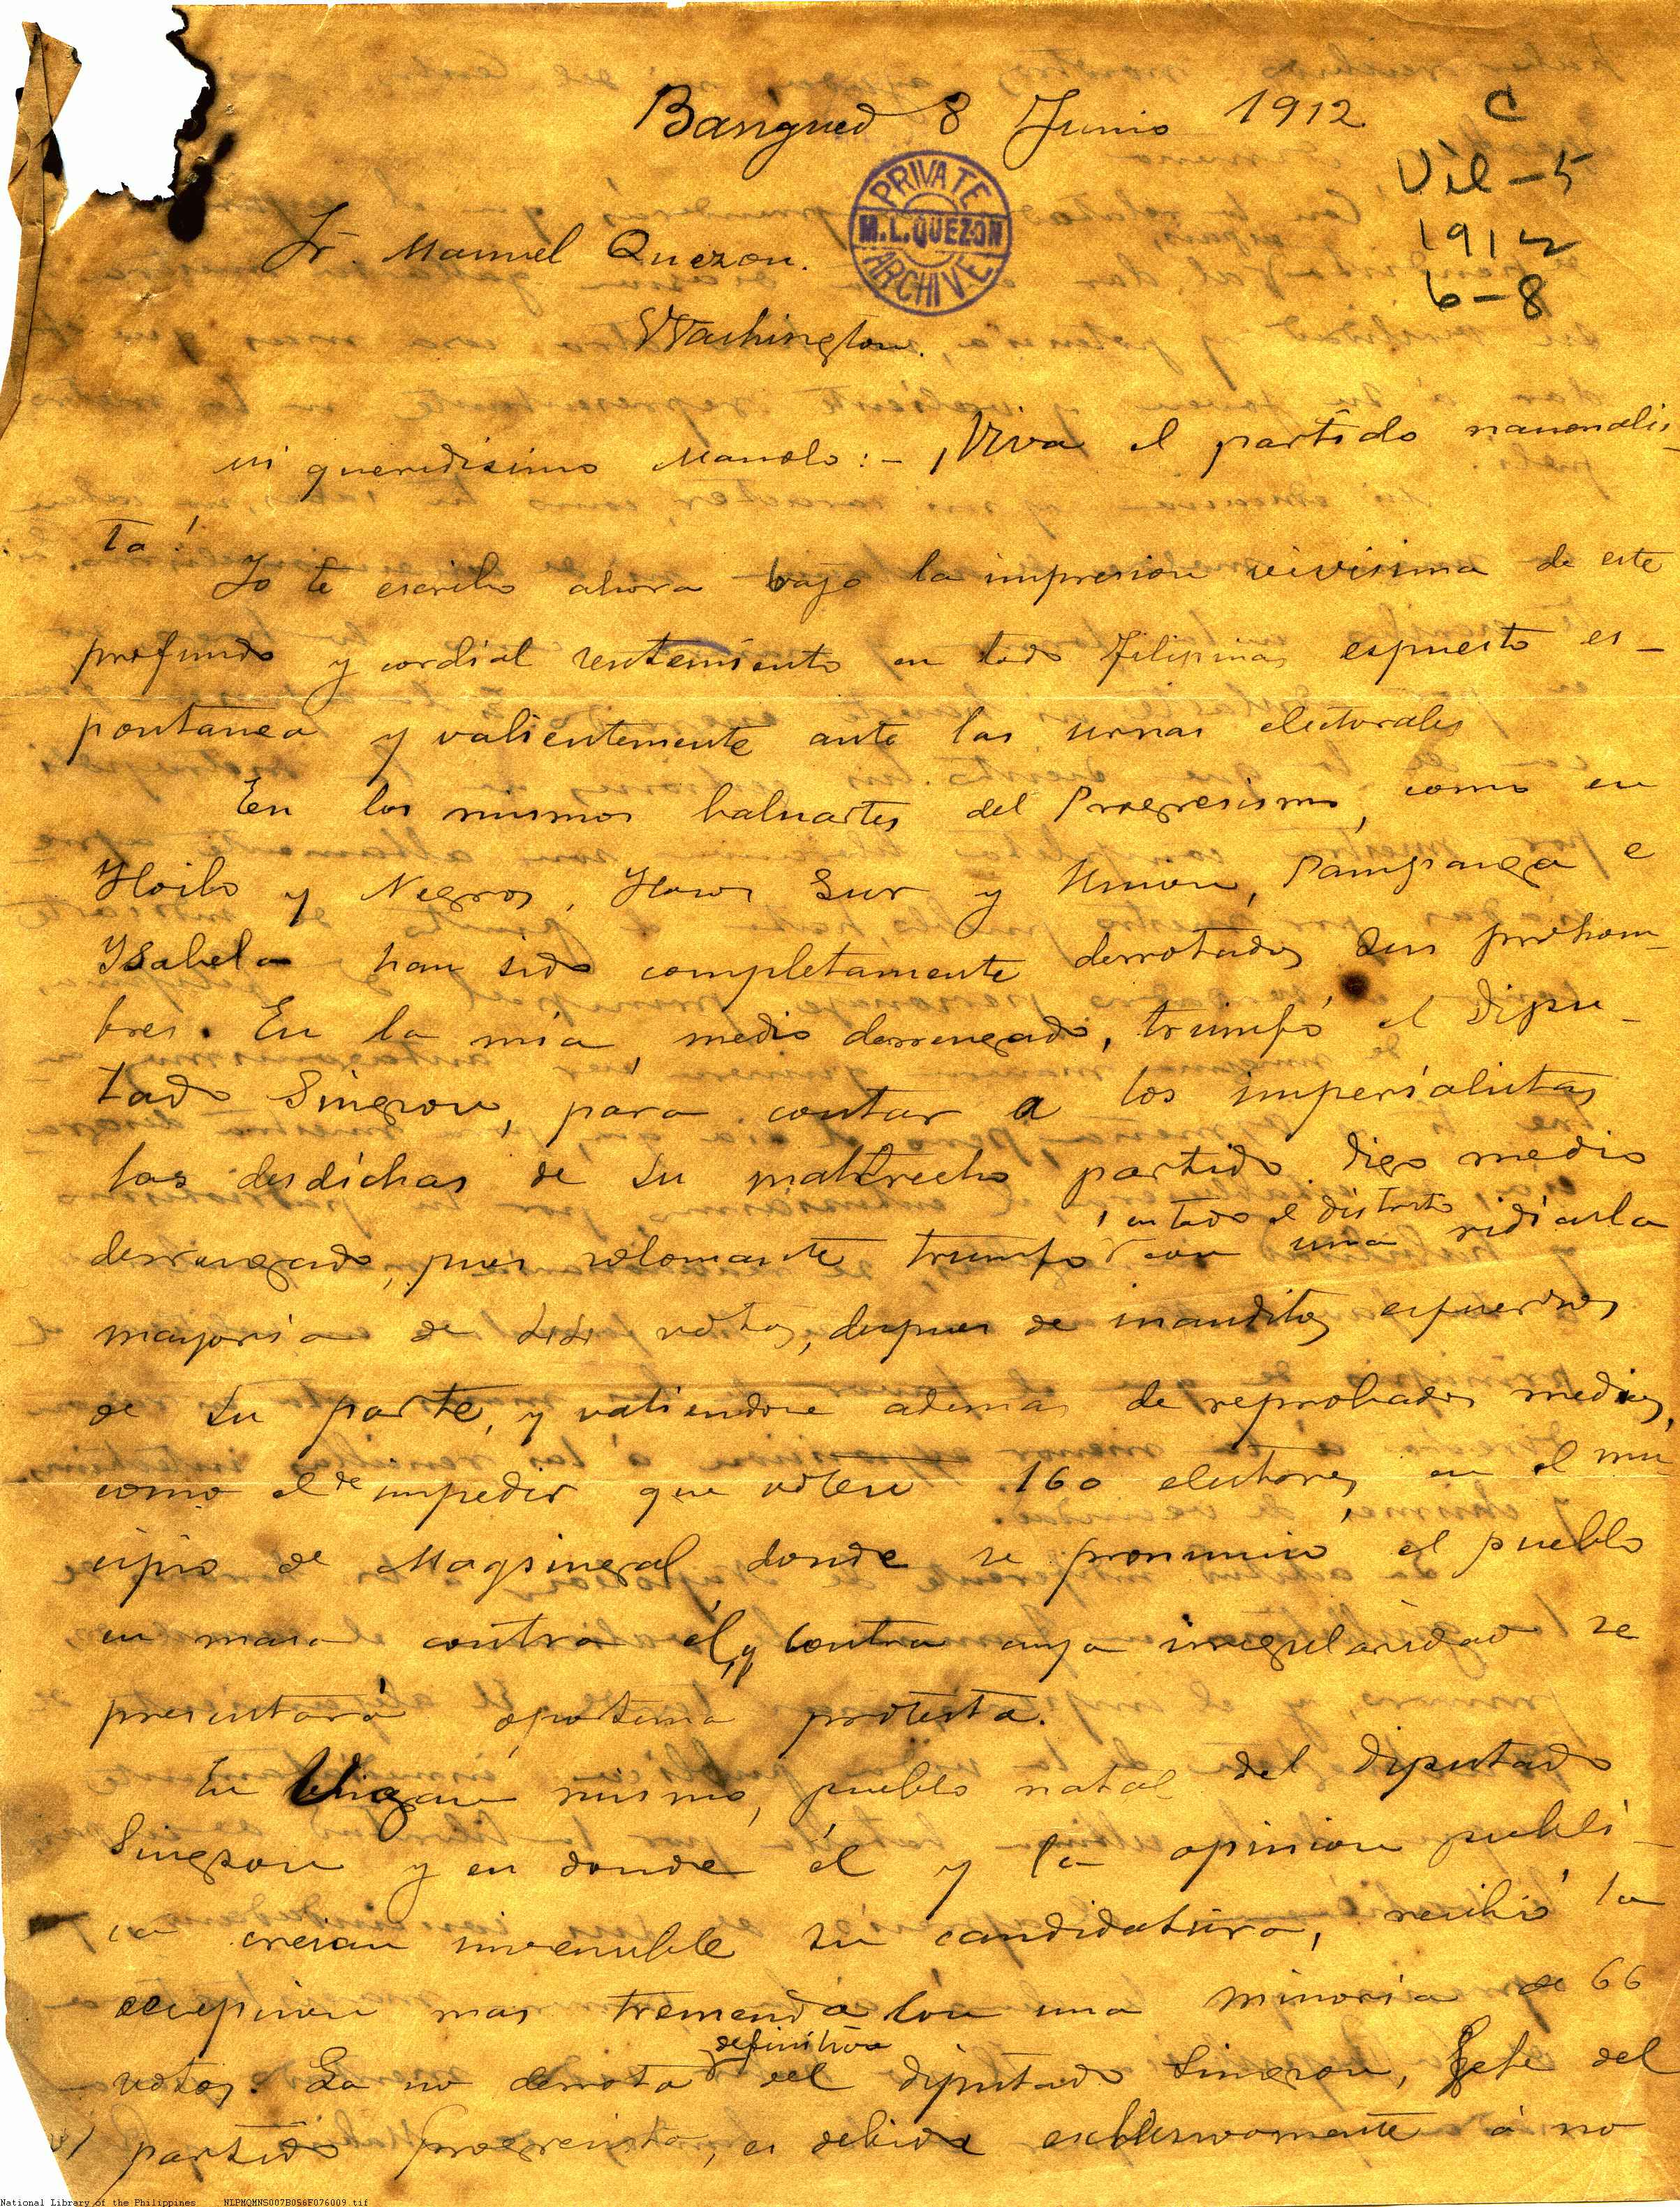 Bangued 8 Junio 1912
C
Vil-5
1912
6-8
PRIVATE
M.L.QUEZON
ARCHIVE
Sr. Manuel Quezon.
Washington.
Mi queridisimo Manolo:- ¡Viva el partido nacionalis-
ta!
Yo te escribo ahora bajo la impresion vivisima de este
profundo y cordial sentimiento en todo Filipinas espuesto es-
pontanea y valientemente ante las urnas electorales
En los mismos baluartes del Progresismo, como en
Yloilo y Negros, Ylocos Sur y Union, Pampanga e
Ysabela han sido completamente derrotados sus prohom-
bres. En la mia, medio derrengado, triunfó el Dipu-
tado Singson, para contar a los imperialistas
las desdichas de su maltrecho partido. Digo medio
derrengado, pues solamante triunfo en todo el distrito con una ridicula
mayoria de votos, despues de inauditos esfuerzos
de su parte, y valiendose ademas de reprobados medios,
como el de impedir que voten 160 electores en el mu-
cipio de Magsingal donde se pronunció el pueblo
en masa contra él, y contra cuya irregularidad se
presentará oportuna protesta.
En Vigan mismo, pueblo natal del diputado
Singson y en donde él y la opinion publi-
ca creian invencible su candidatura, recibió la
decepcion mas tremenda con una minoria de 66
votos. La no derrota definitiva del diputado Singson, Jefe del
partido progresista, es debida exclusivamente á no
National Library of the Philippines NLPMQMNS007B056F076009.tif